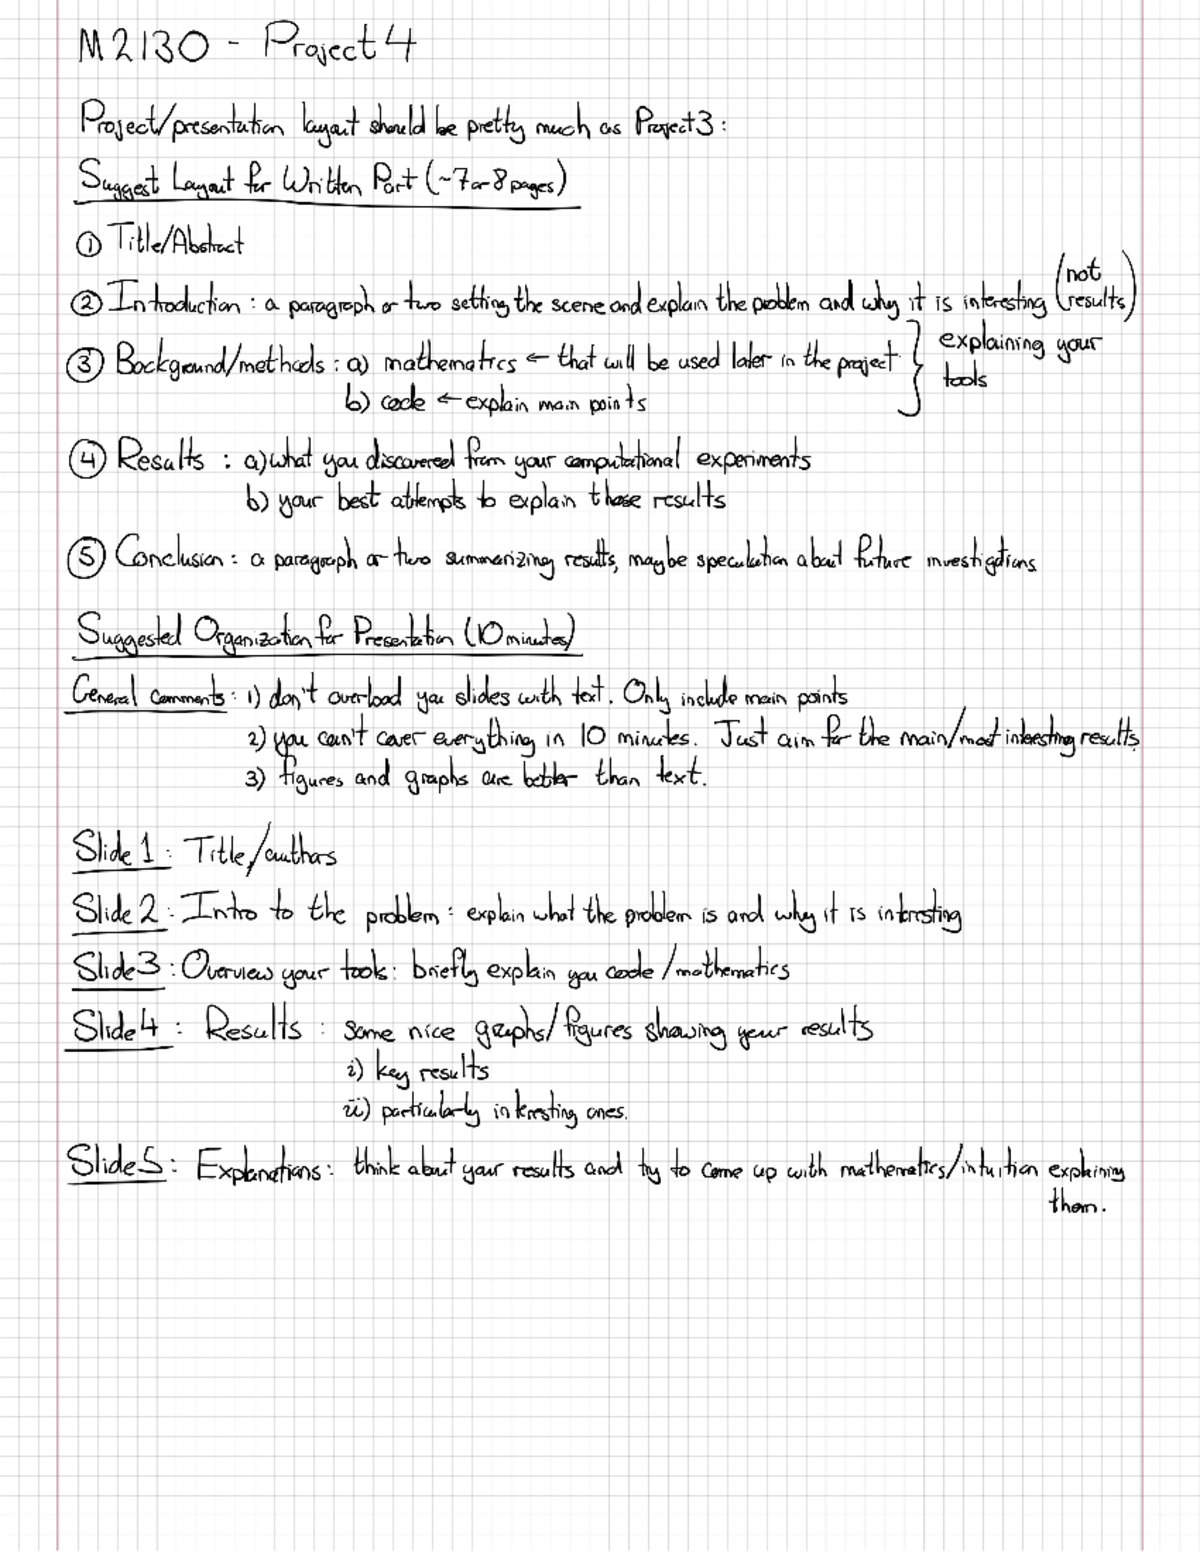 M2130 - Project 4
Project/presentation layout should be pretty much as Project 3:
Suggest Layout for Written Part (~7 or 8 pages)
① Title/Abstract
② Introduction: a paragraph or two setting the scene and explain the problem and why it is interesting (not results)
③ Background/methods: a) mathematics ← that will be used later in the project } explaining your tools
b) code ← explain main points
④ Results: a) what you discovered from your computational experiments
b) your best attempts to explain those results
⑤ Conclusion: a paragraph or two summarizing results, maybe speculation about future investigations
Suggested Organization for Presentation (10 minutes)
General Comments: 1) don't overload you slides with text. Only include main points
2) you can't cover everything in 10 minutes. Just aim for the main/most interesting results.
3) figures and graphs are better than text.
Slide 1: Title/authors
Slide 2: Intro to the problem: explain what the problem is and why it is interesting
Slide 3: Overview your tools: briefly explain you code/mathematics
Slide 4: Results: some nice graphs/figures showing your results
i) key results
ii) particularly interesting ones.
Slide 5: Explanations: think about your results and try to come up with mathematics/intuition explaining
them.